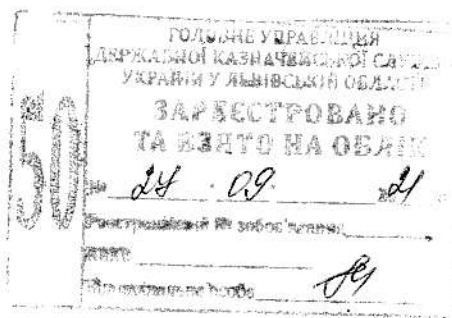 50
ГОЛОВНЕ УПРАВЛІННЯ
ДЕРЖАВНОЇ КАЗНАЧЕЙСЬКОЇ СЛУЖБИ
УКРАЇНИ У ЛЬВІВСЬКІЙ ОБЛАСТІ
ЗАРЕЄСТРОВАНО
ТА ВЗЯТО НА ОБЛІК
27 . 09. 21
Реєстраційний № зобов'язання
Відповідальна особа